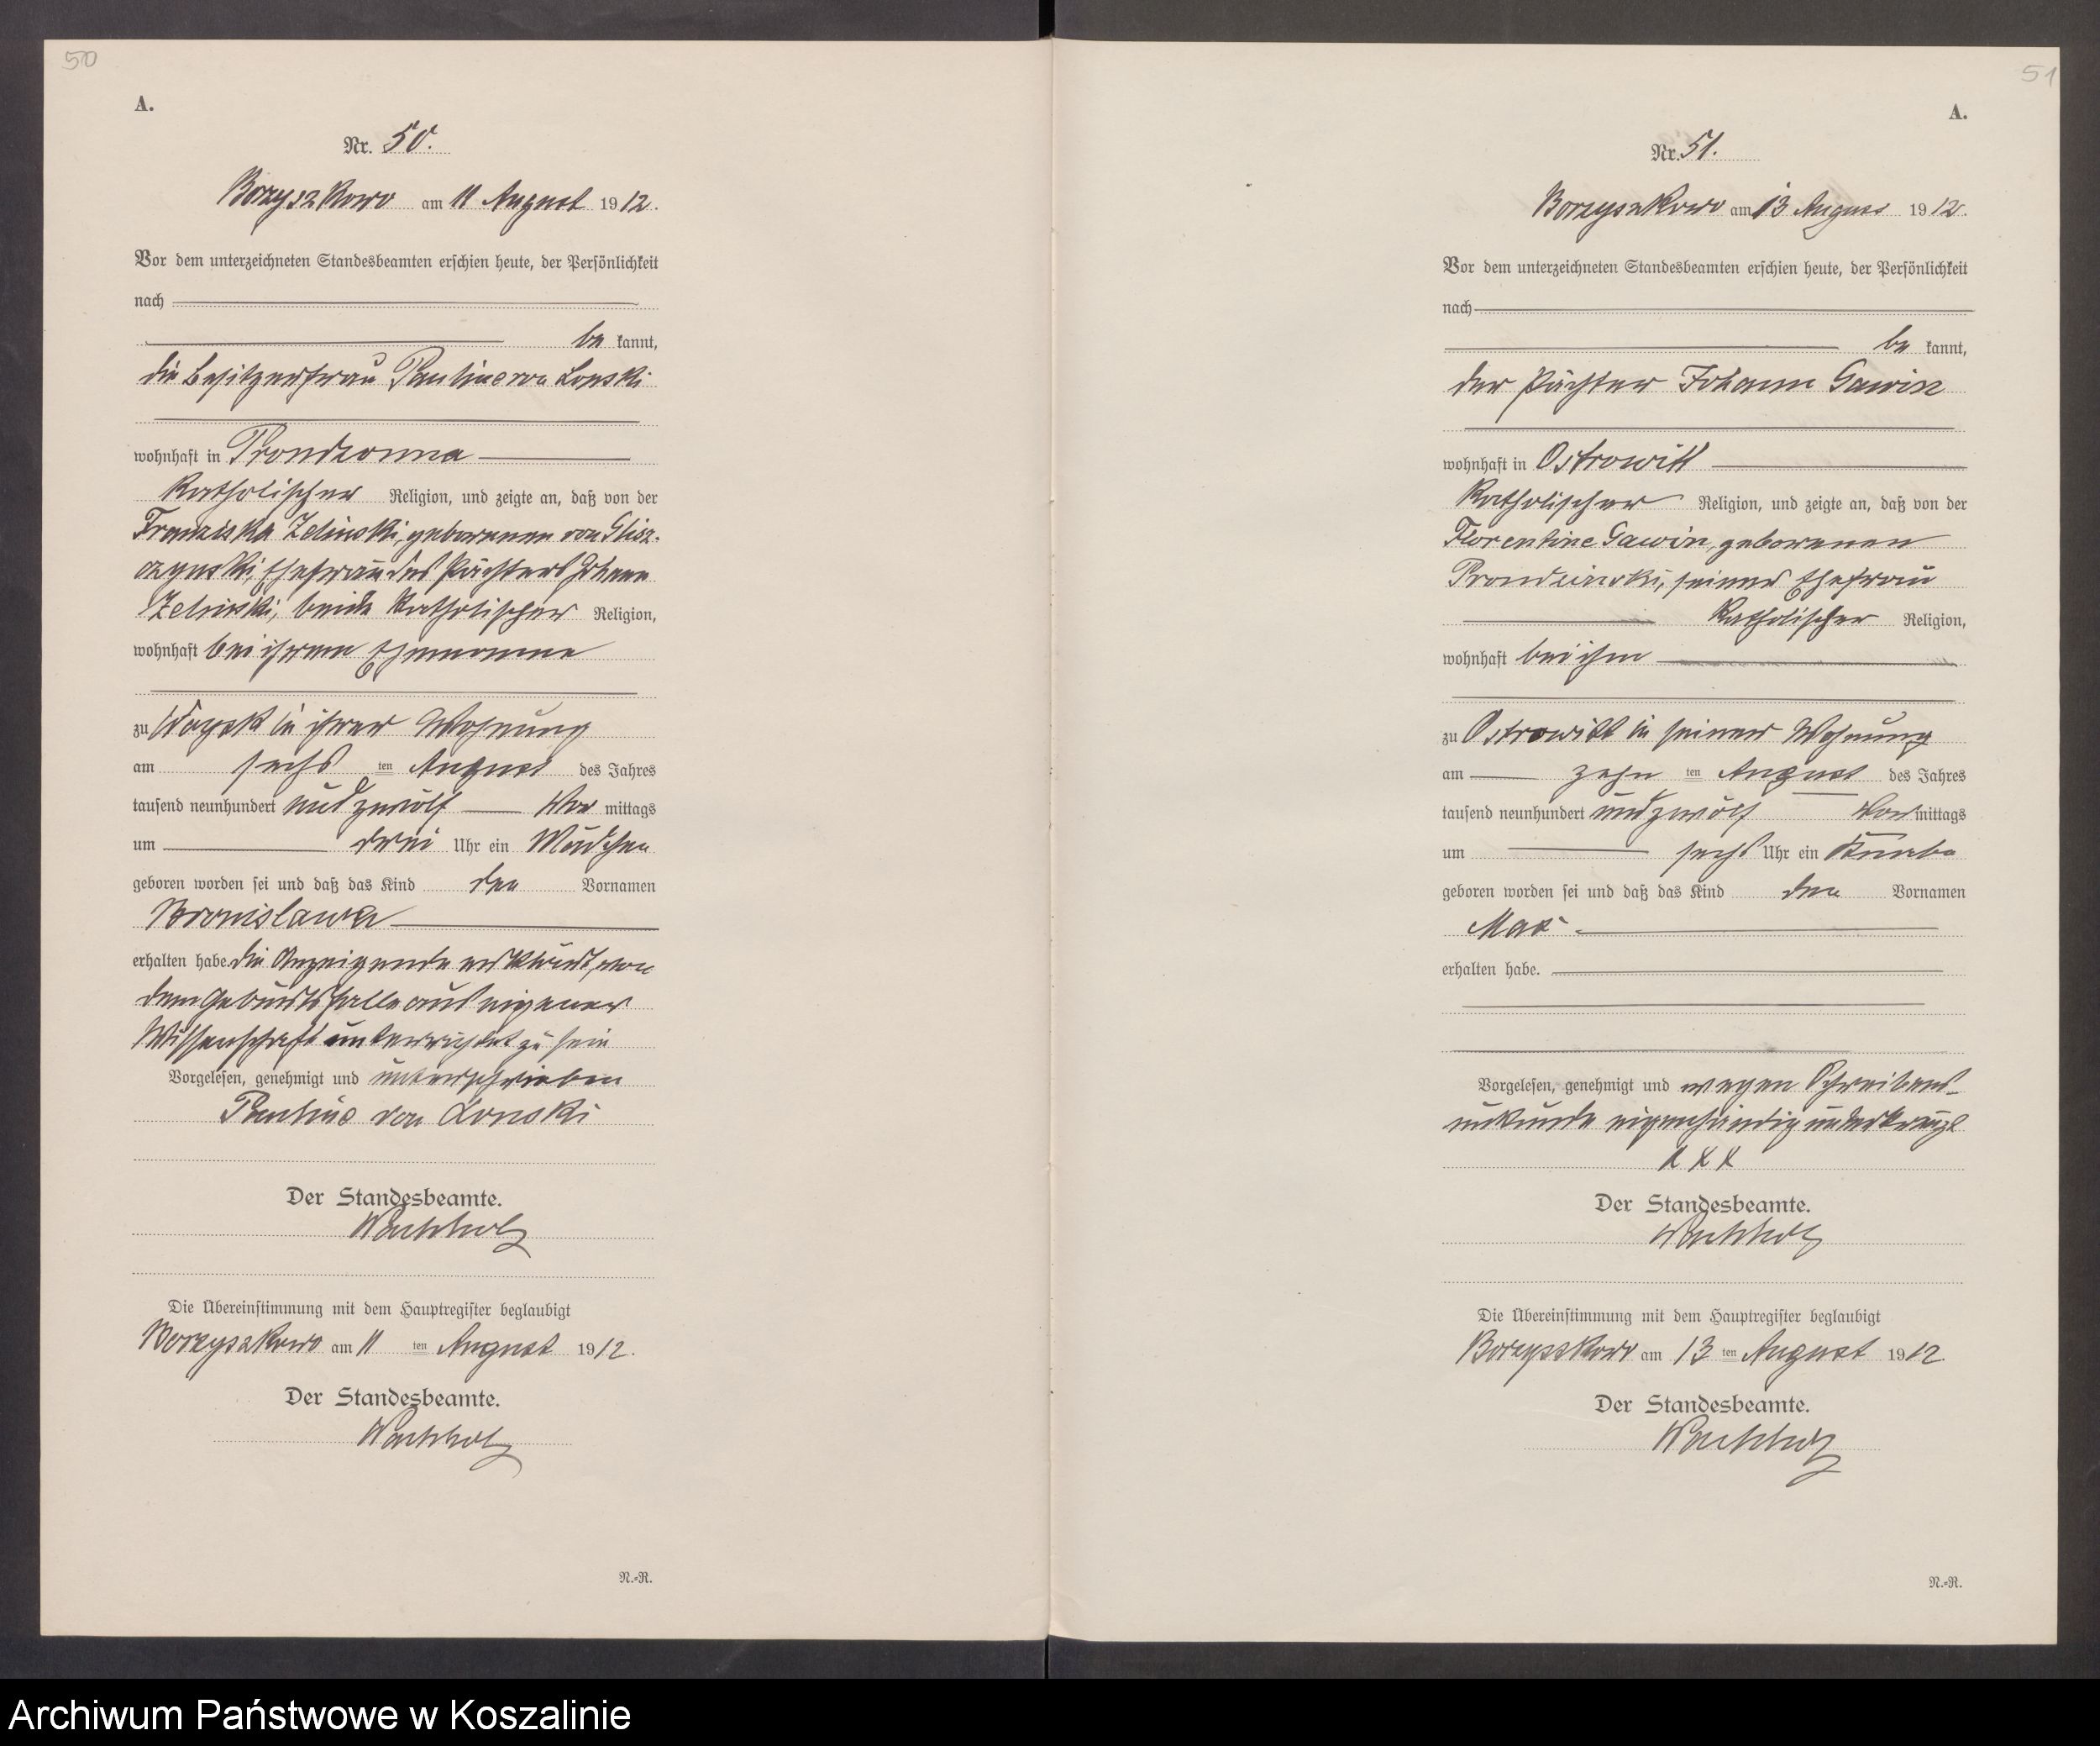 50
A.
Nr. 50.
Borzyszkowo am 11 August 1912.
Vor dem unterzeichneten Standesbeamten erschien heute, der Persönlichkeit
nach
be kannt,
die Besitzerfrau Pauline von Lonski
wohnhaft in Prondzonna
katholischer Religion, und zeigte an, daß von der
Franziska Zelinski, geborenen von Glisz-
czynski, Ehefrau des Pächters Johann
Zelinski, beide katholischer Religion,
wohnhaft bei ihrem Ehemanne
zu in ihrer Wohnung
am sechs ten August des Jahres
tausend neunhundert und zwölf Vor mittags
um drei Uhr ein Mädchen
geboren worden sei und daß das Kind den Vornamen
Bronislawa
erhalten habe. die Anzeigende erklärt, von
dem Geburtsfalle aus eigener
Wissenschaft unterrichtet zu sein
Vorgelesen, genehmigt und unterschrieben
Pauline von Lonski
Der Standesbeamte.
Wachholz
Die Übereinstimmung mit dem Hauptregister beglaubigt
Borzyszkowo am 11 ten August 1912.
Der Standesbeamte.
Wachholz
N.=R.
51
A.
Nr. 51.
Borzyszkowo am 13 August 1912.
Vor dem unterzeichneten Standesbeamten erschien heute, der Persönlichkeit
nach
be kannt,
der Pächter Johann Gawin
wohnhaft in Ostrowitt
katholischer Religion, und zeigte an, daß von der
Florentine Gawin, geborenen
Prondzinski, seiner Ehefrau
katholischer Religion,
wohnhaft bei ihm
zu Ostrowitt in seiner Wohnung
am zehn ten August des Jahres
tausend neunhundert und zwölf Vor mittags
um sechs Uhr ein Knabe
geboren worden sei und daß das Kind den Vornamen
Max
erhalten habe.
Vorgelesen, genehmigt und wegen Schreibens-
unkunde eigenhändig unterkreuzt
X X X
Der Standesbeamte.
Wachholz
Die Übereinstimmung mit dem Hauptregister beglaubigt
Borzyszkowo am 13 ten August 1912
Der Standesbeamte.
Wachholz
N.=R.
Archiwum Państwowe w Koszalinie